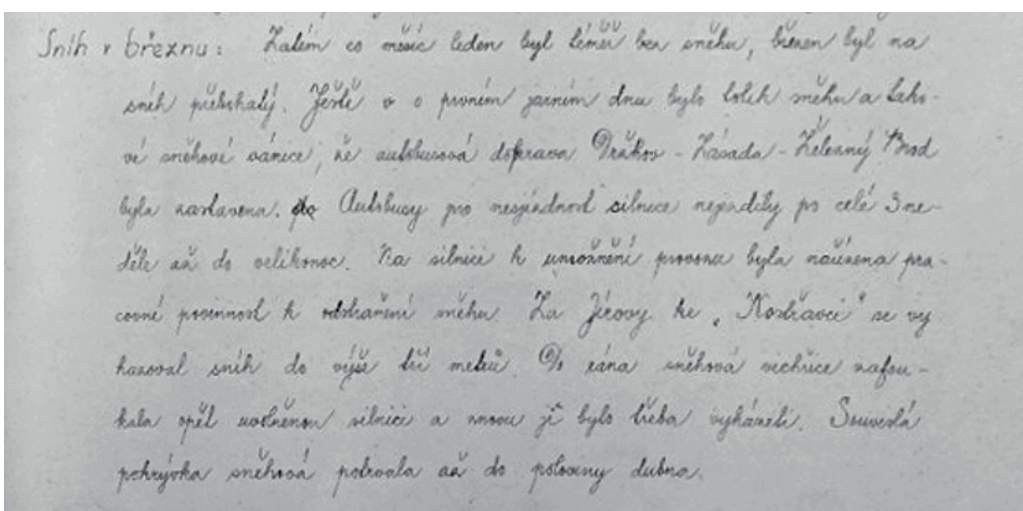 Sníh v březnu: Zatím co měsíc leden byl téměř bez sněhu, březen byl na
sníh přebohatý. Ještě v o prvním jarním dnu bylo tolik sněhu a tako-
vé sněhové vánice, že autobusová doprava Držkov - Zásada - Železný Brod
byla zastavena. Autobusy pro nesjízdnost silnice nejezdily po celé 3 ne-
děle až do velikonoc. Na silnici k umožnění provozu byla nařízena pra-
covní povinnost k odstranění sněhu. Za Jírovy ke „Kostřavci" se vy
hazoval sníh do výše tří metrů. Do rána sněhová vichřice zafou-
kala opět uvolněnou silnici a znovu ji bylo třeba vyházeti. Souvislá
pokrývka sněhová potrvala až do poloviny dubna.